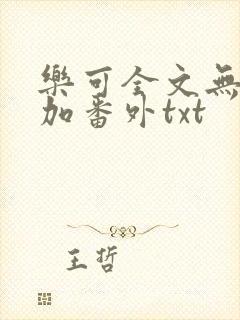 樂可全文無
加番外txt
王哲